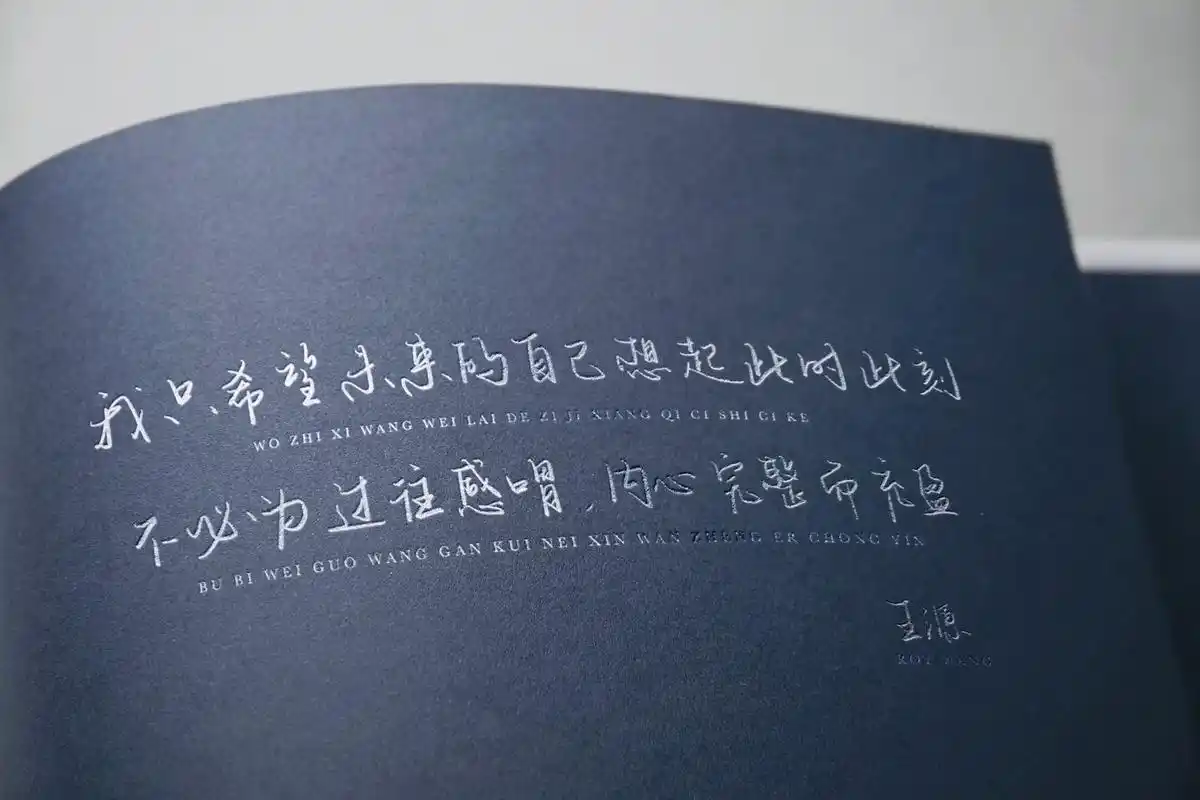 我只希望未来的自己想起此时此刻
WO ZHI XI WANG WEI LAI DE ZI JI XIANG QI CI SHI CI KE
不必为过往感喟,内心完整而充盈
BU BI WEI GUO WANG GAN KUI NEI XIN WAN ZHENG ER CHONG YIN
王源
ROY WANG